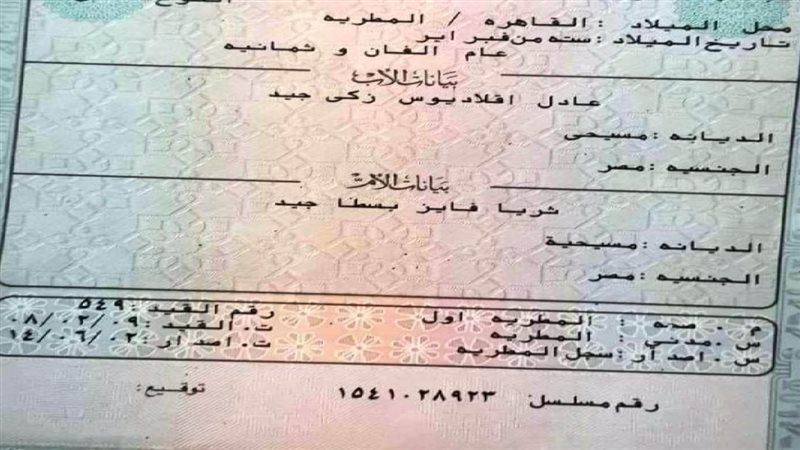 محل الميلاد : القاهره / المطريه
تاريخ الميلاد : سته من فبراير
عام الفان و ثمانيه
بيانات الأب
عادل اقلاديوس زكى جيد
الديانه : مسيحى
الجنسيه : مصر
بيانات الأم
ثريا فايز بسطا جيد
الديانه : مسيحية
الجنسيه : مصر
م . صحه : المطريه اول رقم القيد : ٥٤٩
س . مدني : المطريه ت. القيد : ٠٨/٠٢/٠٩
س . اصدار : سجل المطريه ت. اصدار : ١٤/٠٦/٠٢
رقم مسلسل ١٥٤١٠٢٨٩٢٣ توقيع :